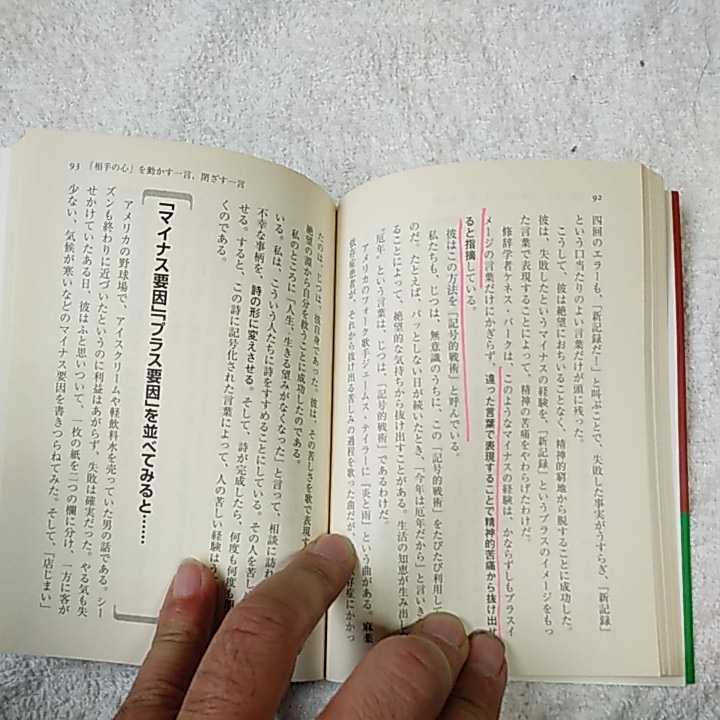 92
四回のエラーも、「新記録だー!」と叫ぶことで、失敗した事実がうすらぎ、「新記録」
という口当たりのよい言葉だけが頭に残った。
こうして、彼は絶望におちいることなく、精神的窮地から脱することに成功した。
彼は、失敗したというマイナスの経験を、「新記録」というプラスのイメージをもっ
た言葉で表現することによって、精神の苦痛をやわらげたわけだ。
修辞学者ケネス・バークは、このようなマイナスの経験は、かならずしもプラスイ
メージの言葉だけにかぎらず、違った言葉で表現することで精神的苦痛から抜け出せ
ると指摘している。
彼はこの方法を「記号的戦術」と呼んでいる。
私たちも、じつは、無意識のうちに、この「記号的戦術」をたびたび利用して
のだ。たとえば、パッとしない日が続いたとき、「今年は厄年だから」と言いき
ることによって、絶望的な気持ちから抜け出すことがある。生活の知恵が生み出し
「厄年」という言葉は、じつは、「記号的戦術」であるわけだ。
アメリカのフォーク歌手ジェームス・テイラーに『炎と雨』という曲がある。麻薬
依存症患者が、それから抜け出る苦しみの過程を歌った曲だが
存症にかかっ
93 「相手の心」を動かす一言、閉ざす一言
たのは、じつは、彼自身であった。彼は、その苦しさを歌で表現す
絶望の淵から自分を救うことに成功したのである。
私のところに「人生、生きる望みがなくなった」と言って、相談に訪れ
いる。私は、こういう人たちに詩をすすめることにしている。その人を苦し
不幸な事柄を、詩の形に変えさせる。そして、詩が完成したら、何度も何度も
せる。すると、この詩に記号化された言葉によって、人の苦しい経験は
くのである。
「マイナス要因」「プラス要因」を並べてみると……
アメリカの野球場で、アイスクリームや軽飲料水を売っていた男の話である。シー
ズンも終わりに近づいたというのに利益はあがらず、失敗は確実だった。やる気も失
せかけていたある日、彼はふと思いついて、一枚の紙を二つの欄に分け、一方に客が
少ない、気候が寒いなどのマイナス要因を書きつらねてみた。そして、「店じまい」